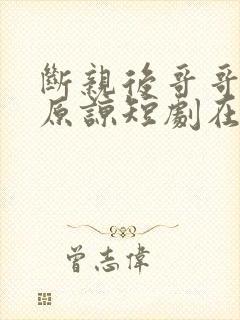 斷親後哥哥
原諒短劇在
曾志偉